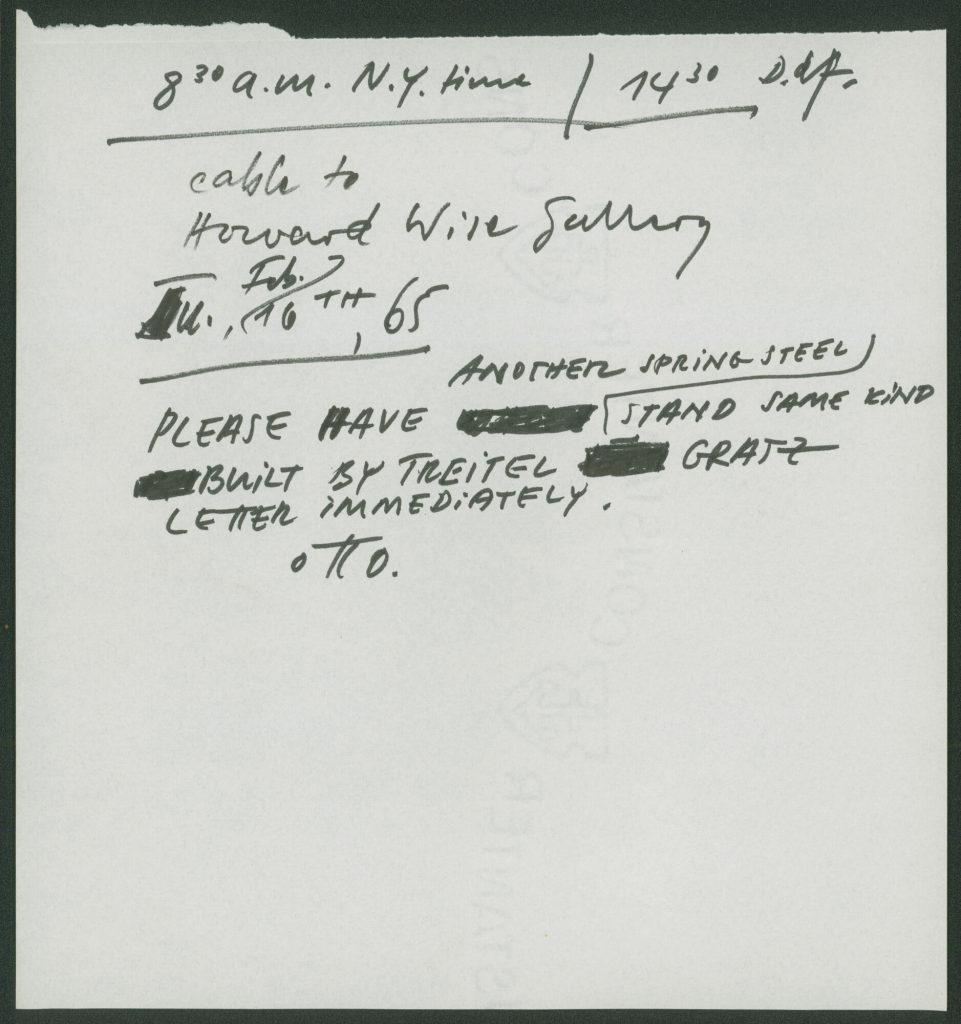 8³⁰ a.m. N.Y. time / 14³⁰ D.df.
cable to
Howard Wise Gallery
Feb.
16TH, 65
ANOTHER SPRING STEEL
PLEASE HAVE STAND SAME KIND
BUILT BY TREITEL GRATZ
LETTER IMMEDIATELY.
OTTO.